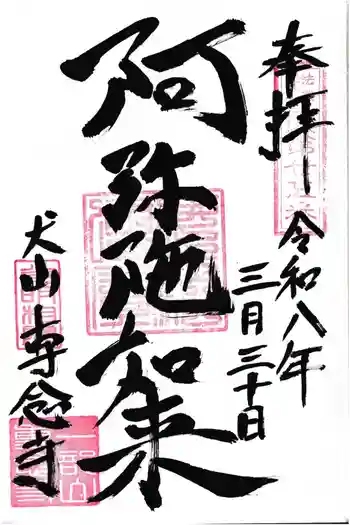 奉拝
令和八年
三月三十日
阿弥陀如来
犬山専念寺